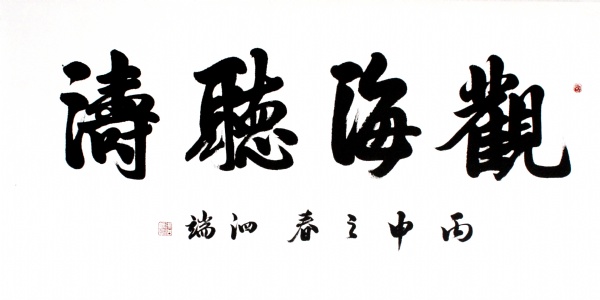 觀海聽濤
丙申之春 泗端